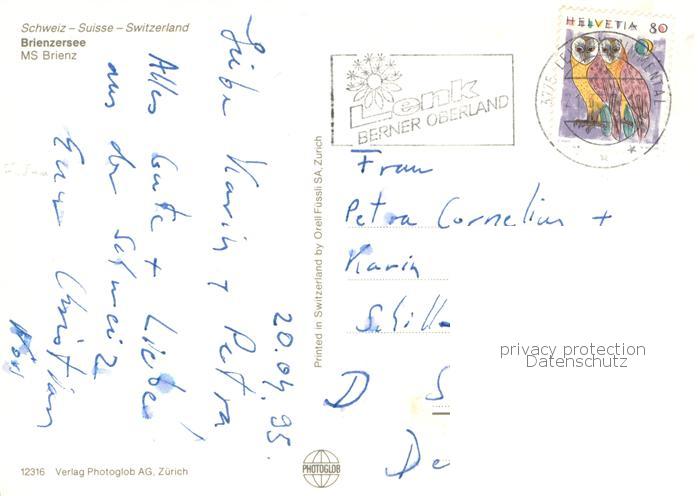 Schweiz – Suisse – Switzerland
Brienzersee
MS Brienz
20.04.95.
Liebe Karin + Petra
Alles Gute + Liebe
aus der Schweiz
Euer Christian
Printed in Switzerland by Orell Füssli SA, Zürich
Lenk
BERNER OBERLAND
HELVETIA 80
Frau
Petra Cornelius +
Karin
Schill
D S
De
privacy protection
Datenschutz
12316 Verlag Photoglob AG, Zürich
PHOTOGLOB